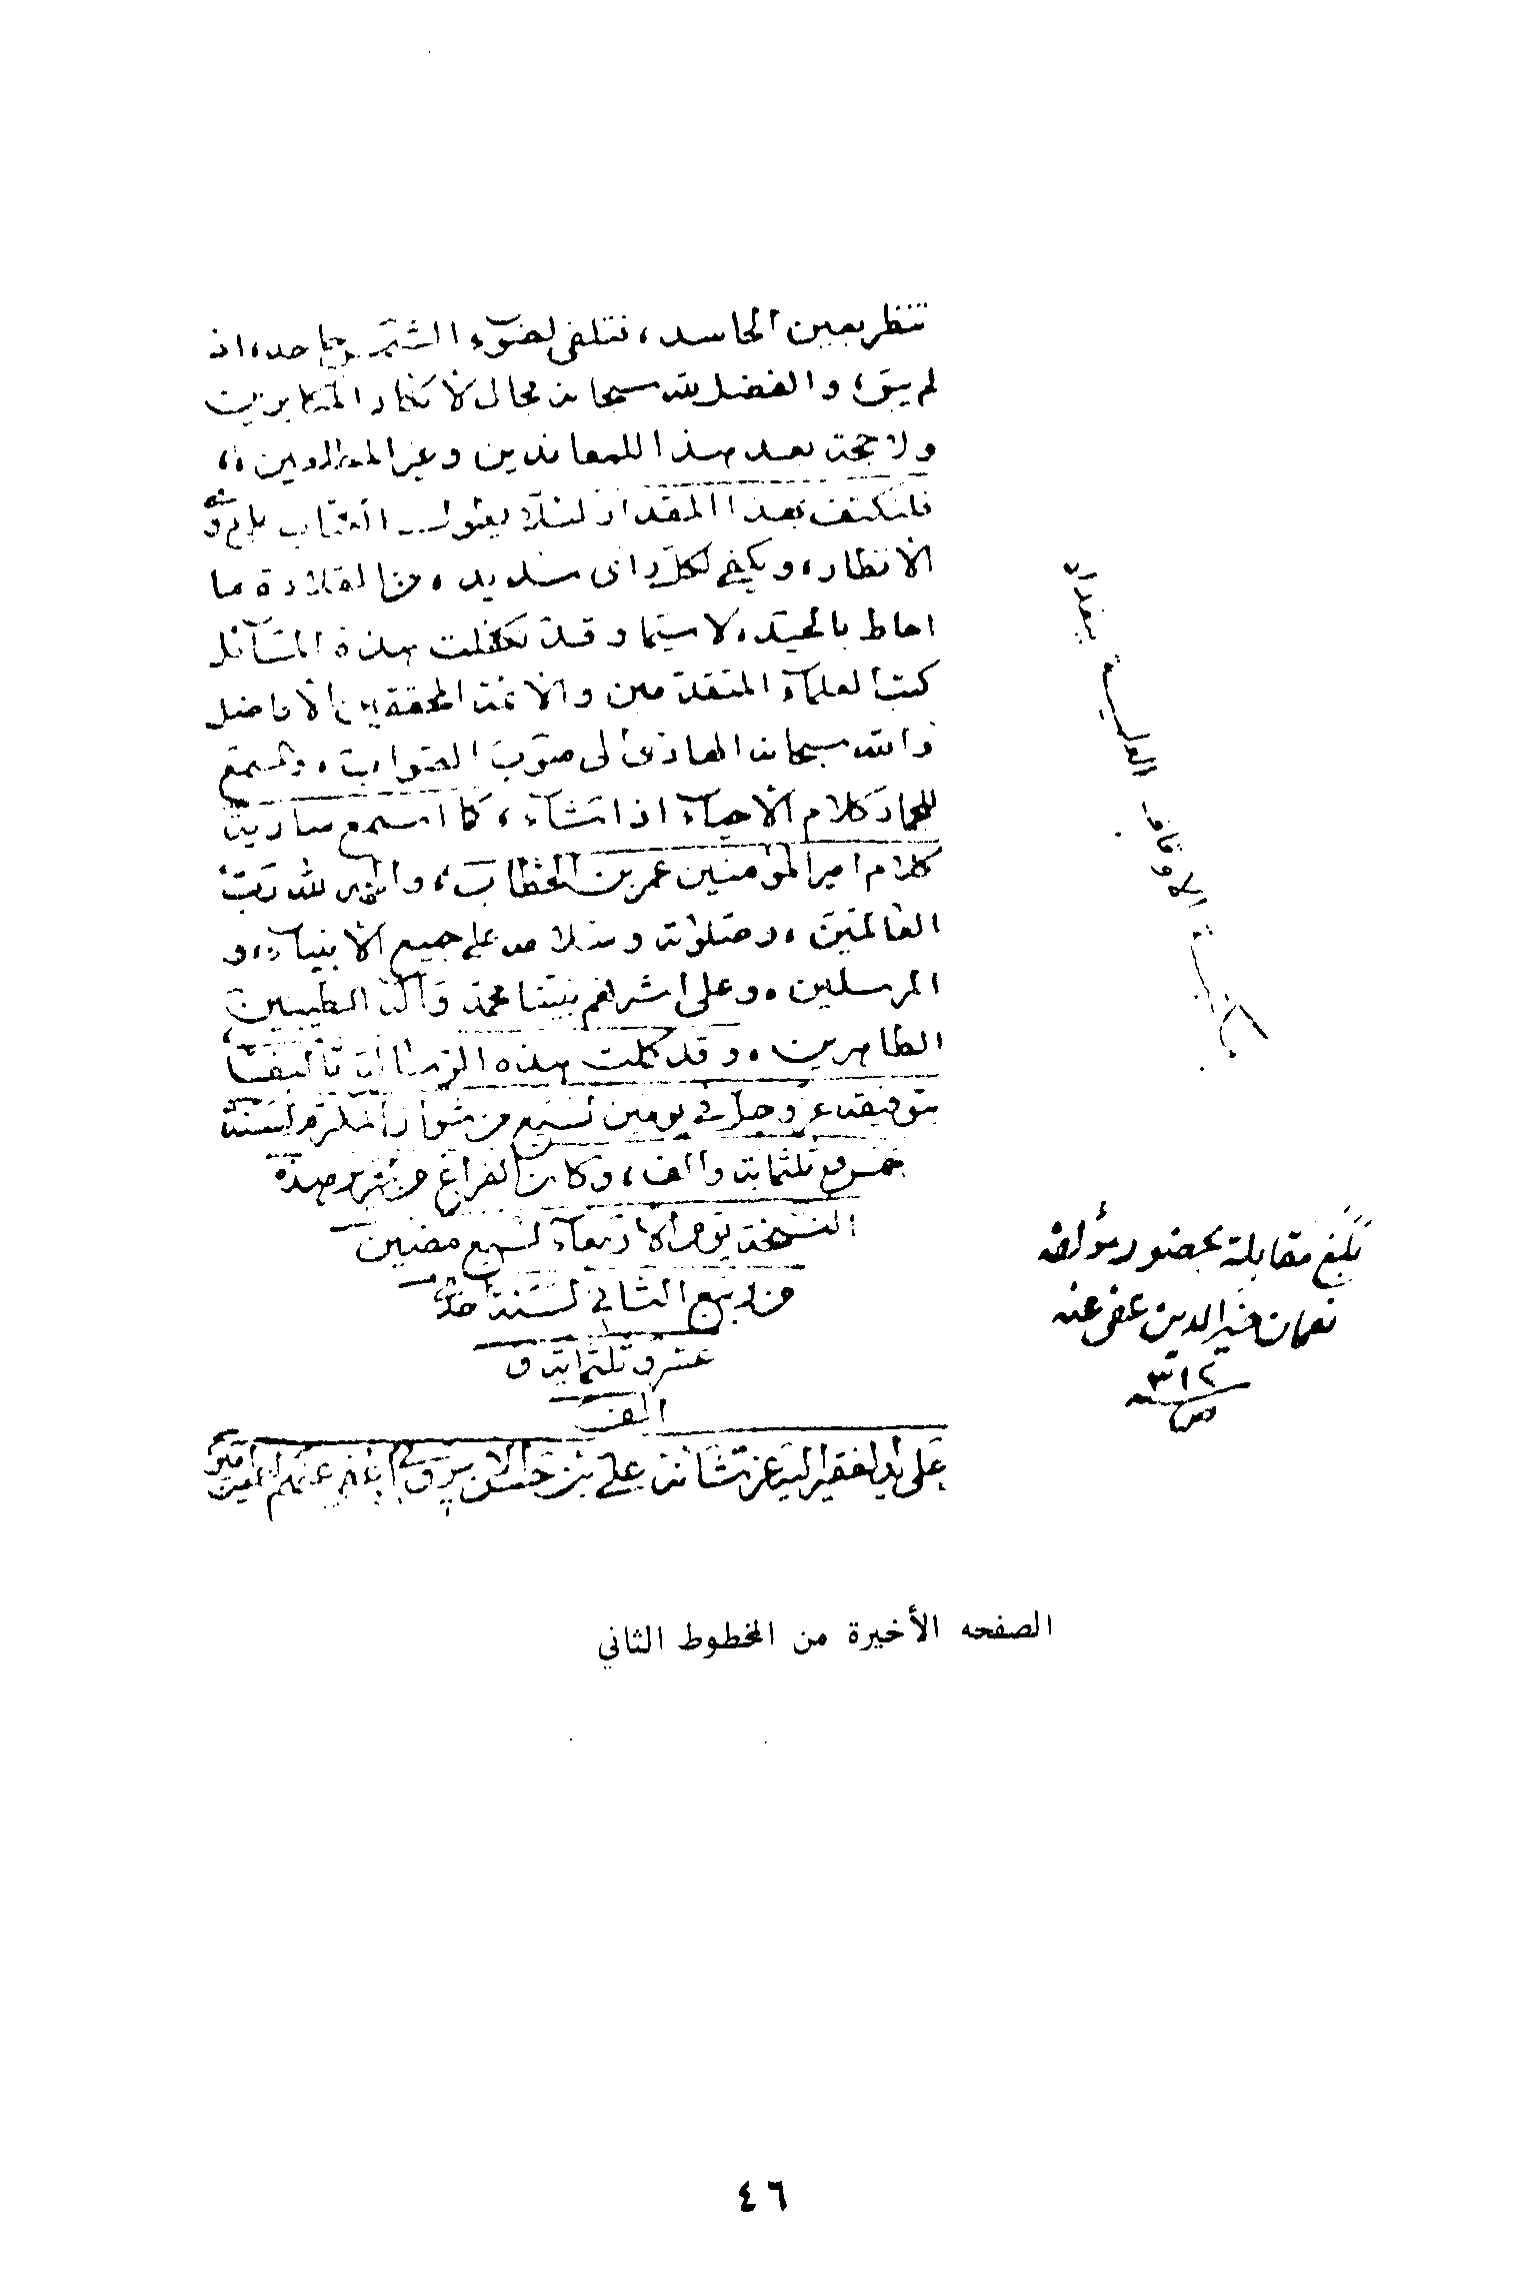 تنظر بعين الحاسد، فتلفى لضوء الشمس جاحد، اذ
لم يبق، والفضل لله سبحانه مجال لانكار المكابرين
ولا حجة بعد هذا للمعاندين وغير المقلدين،،
فلنكتف بهذا المقدار لئلا يطول الكتاب على
الانظار، ويكفي لكل ذي سديد، من القلادة ما
احاط بالجيد، لا سيما وقد تكفلت بهذه المسائل
كتب العلماء المتقدمين والائمة المحققين الافاضل
والله سبحانه الهادي الى صوب الصواب، والمسمع
للجماد كلام الاحياء اذا شاء، كما اسمع سارية
كلام امير المؤمنين عمر بن الخطاب، والحمد لله رب
العالمين، وصلوته وسلامه على جميع الانبياء، و
المرسلين، وعلى اشرافهم نبينا محمد وآله الطيبين
الطاهرين، وقد كملت هذه الرسالة تاليفا
بتوفيقه عز وجل في يومين لسبع من شوال المكرم لسنة
خمس وثلثماية والف، وكان الفراغ من تحرير هذه
النسخة يوم الاربعاء لسبع مضين
من ربيع الثاني لسنة احدى
عشر وثلثماية و
الف
على يد الفقير اليه عز شانه علي بن حسن عنهم اجمعين امين
بلغ مقابلة بحضور مؤلفه
نعمان خير الدين عفي عنه
٣١٢
مكتبة الاوقاف العامة ببغداد
الصفحه الأخيرة من المخطوط الثاني
٤٦